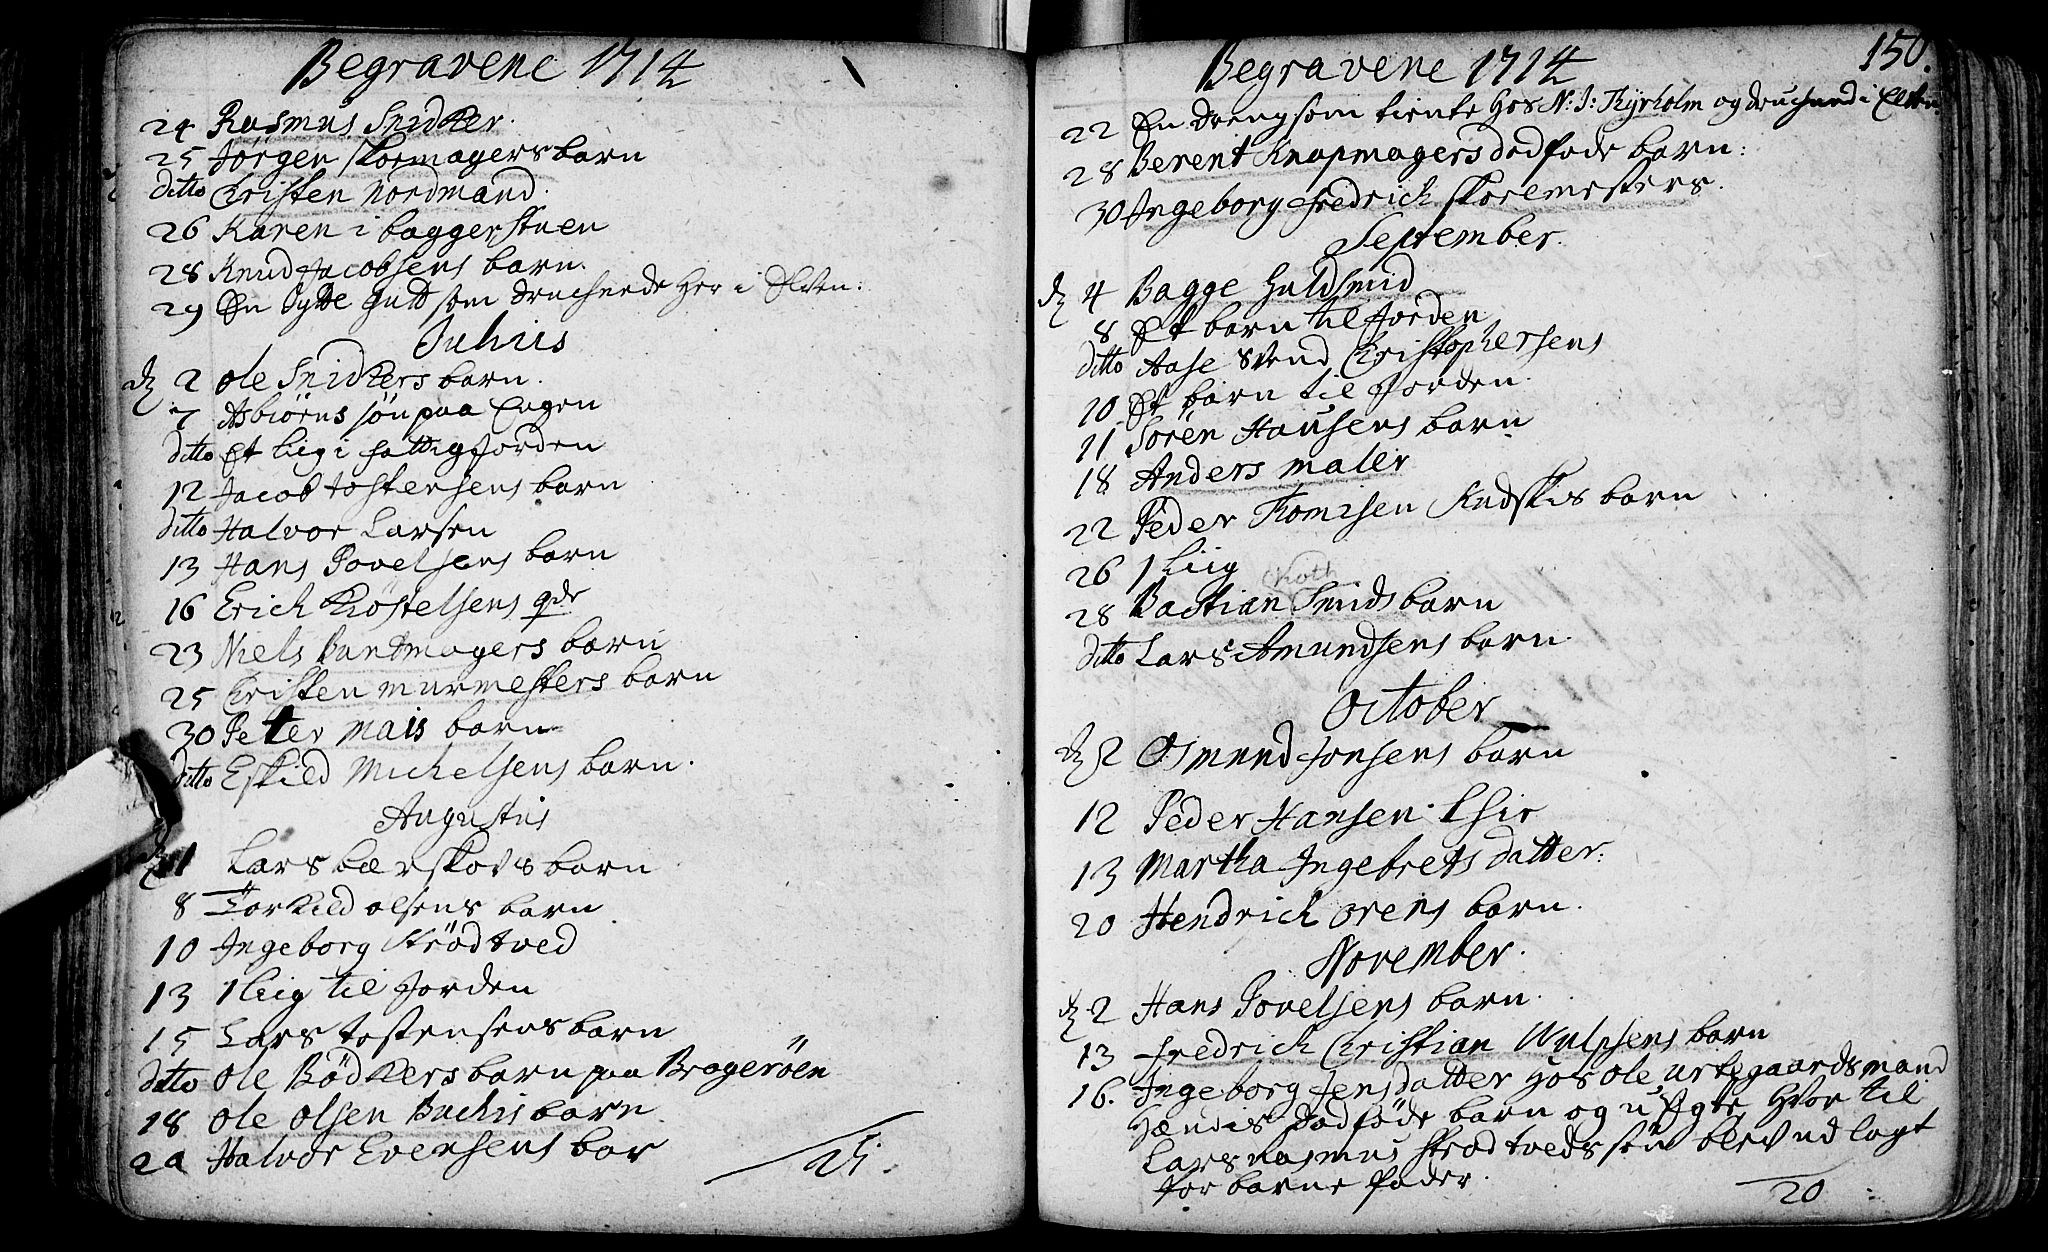 Begravene 1714
24 Rasmus Snidker.
25 Jørgen skormagers barn
ditto Christen Nordmand.
26 Karen i baggerstuen
28 Knud Jacobsens barn.
29 En Gutt som druchnede her i Elven:
Julius
d 2 Ole Snidkers barn.
7 Asbiørns søn paa Engen
ditto Et liig i fattigjorden
12 Jacob tostensens barn
ditto Halvor Larsen
13 Hans Povelsens barn
16 Erich
23 Niels Bundtmagers barn
25 Christen murmesters barn
30 Peter Mais barn
ditto Eskild Michelsens barn.
Augustus
d 1 Lars barn
8 Torkild olsens barn
10 Ingeborg Strødtved
13 1 liig til Jorden
15 Lars tostensens barn
ditto Ole Bødkers barn paa Bragerøen
18 Ole Olsen barn
Halvor Evensens bar
21.
150.
Begravene 1714
22 En dreng som tiente hos N: J: Thyrholm og druchned i Elven
28 Berent Knapmagers dødføde barn:
30 Ingeborg Fredrich skoremesters.
September.
d 4 Bagge Guldsmid
8 Et barn til Jorden
ditto Aase Svend Christophersens
10 Et barn til Jorden.
11 Sørén Hansens barn
18 Anders maler
22 Peder Thomesen barn
26 1 Liig
Koth
28 Bastian Smids barn
ditto Lars Amundsens barn.
October
d 2 Osmund Jonsens barn
12 Peder Hansen
13 Martha Ingebretsdatter.
20 Hendrich orens barn.
November.
d 2 Hans Povelsens barn.
13 Fredrich Christian Wulpsens barn
16. Ingeborg Jensdatter hos Ole urtegaardsmand
Hændis Dødføde barn og uægte, Hvor til
Lars rasmus Strødtveds søn blev ud lagt
for barne fader.
20